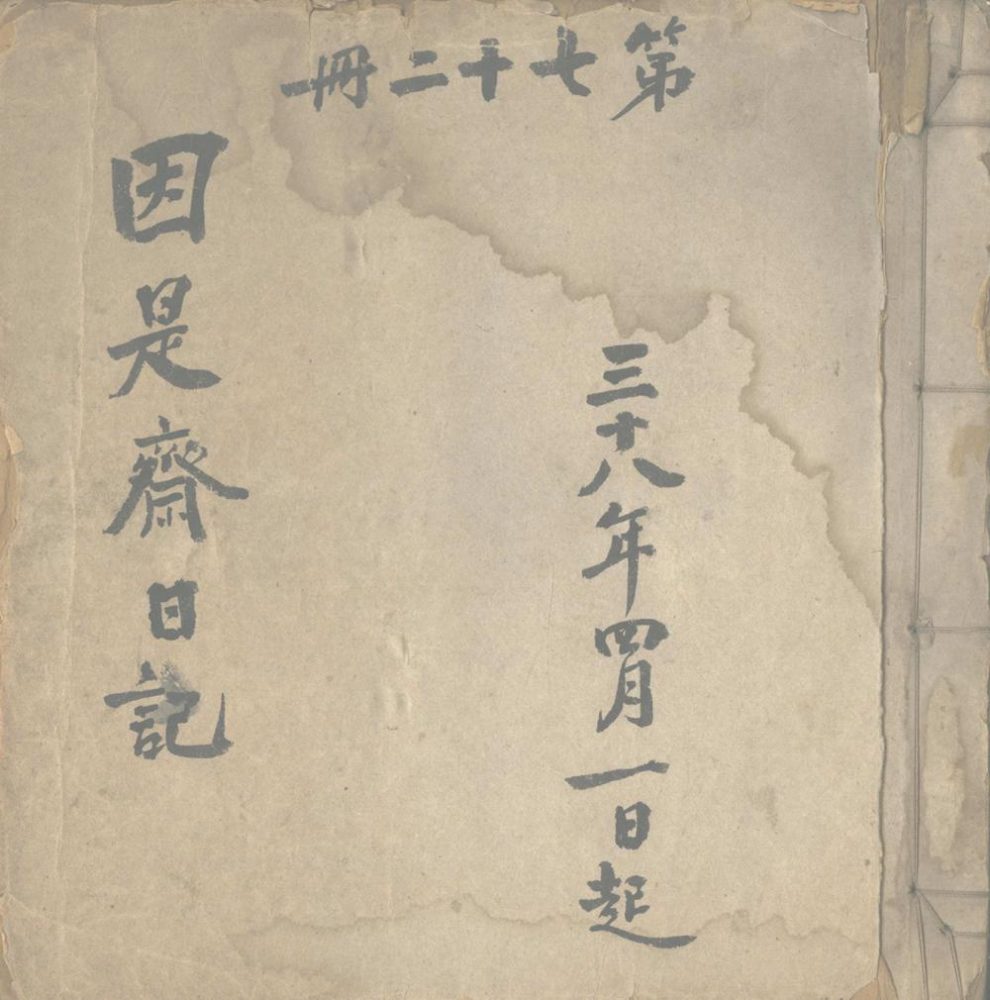 第七十二冊
三十八年四月一日起
因是齋日記